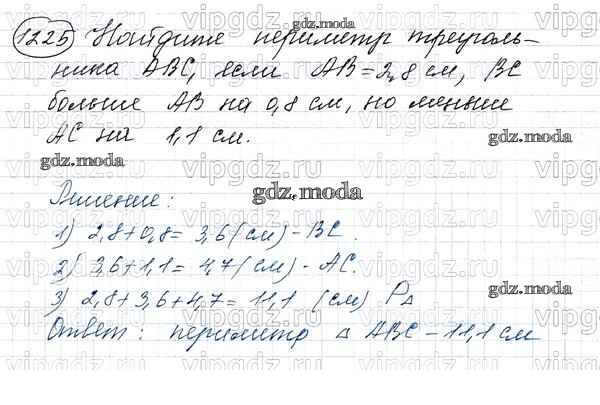 1225 Найдите периметр треуголь-
ника ABC, если AB=2,8 см, BC
больше AB на 0,8 см, но меньше
AC на 1,1 см.
Решение:
1) 2,8+0,8= 3,6(см)-BC.
2) 3,6+1,1= 4,7(см)-AC.
3) 2,8+3,6+4,7=11,1 (см) P△
Ответ: периметр △ ABC-11,1 см
gdz.moda
gdz.moda
gdz.moda
gdz.moda
gdz.moda
vipgdz.ru